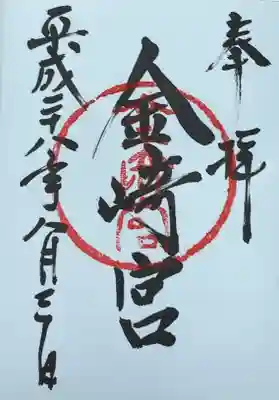 奉拝
金崎宮
平成二十八年八月三日